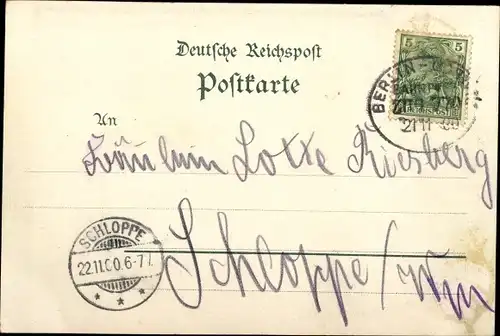 Deutsche Reichspost
5 5
Postkarte
BERLIN
21 11
An
Fräulein Lotte Riesberg
SCHLOPPE
22.11.00.6-7
Schloppe